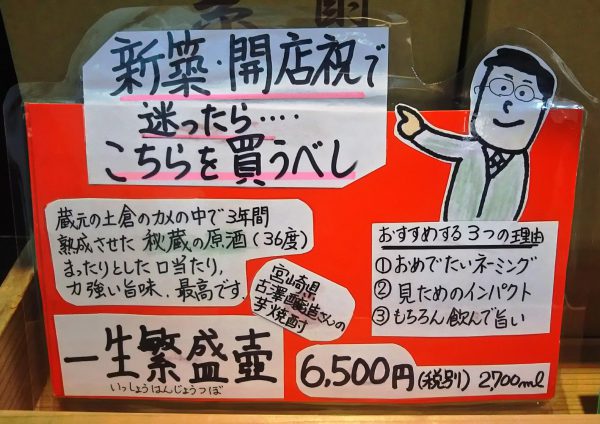 新築・開店祝で
迷ったら‥‥
こちらを買うべし
蔵元の土倉のカメの中で3年間
熟成させた 秘蔵の原酒(36度)
まったりとした口当たり、
力強い旨味、最高です。
宮崎県
古澤醸造さんの
芋焼酎
おすすめする3つの理由
①おめでたいネーミング
②見ためのインパクト
③もちろん飲んで旨い
一生繁盛壷
いっしょうはんじょうつぼ
6,500円(税別) 2,700ml